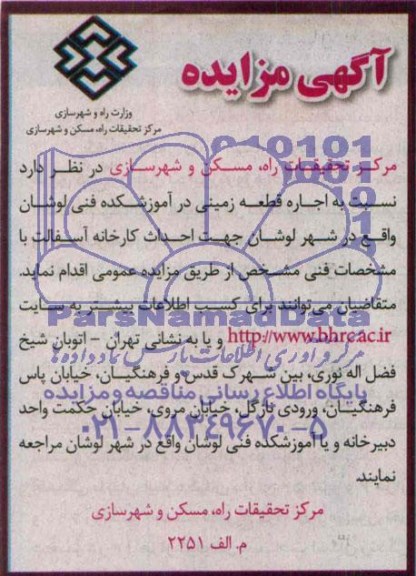 آگهی مزایده
وزارت راه و شهرسازی
مرکز تحقیقات راه، مسکن و شهرسازی
مرکز تحقیقات راه، مسکن و شهرسازی در نظر دارد
نسبت به اجاره قطعه زمینی در آموزشکده فنی لوشان
واقع در شهر لوشان جهت احداث کارخانه آسفالت با
مشخصات فنی مشخص از طریق مزایده عمومی اقدام نماید.
متقاضیان می‌توانند برای کسب اطلاعات بیشتر به سایت
http://www.bhrc.ac.ir و یا به نشانی تهران - اتوبان شیخ
فضل اله نوری، بین شهرک قدس و فرهنگیان، خیابان پاس
فرهنگیان، ورودی نارگل، خیابان مروی، خیابان حکمت واحد
دبیرخانه و یا آموزشکده فنی لوشان واقع در شهر لوشان مراجعه
نمایند.
مرکز تحقیقات راه، مسکن و شهرسازی
م. الف ۲۲۵۱
ParsNamadData
مرکز فرآوری اطلاعات پارس نماد داده ها
پایگاه اطلاع رسانی مناقصه و مزایده
۰۲۱-۸۸۳۴۹۶۷۰-۵